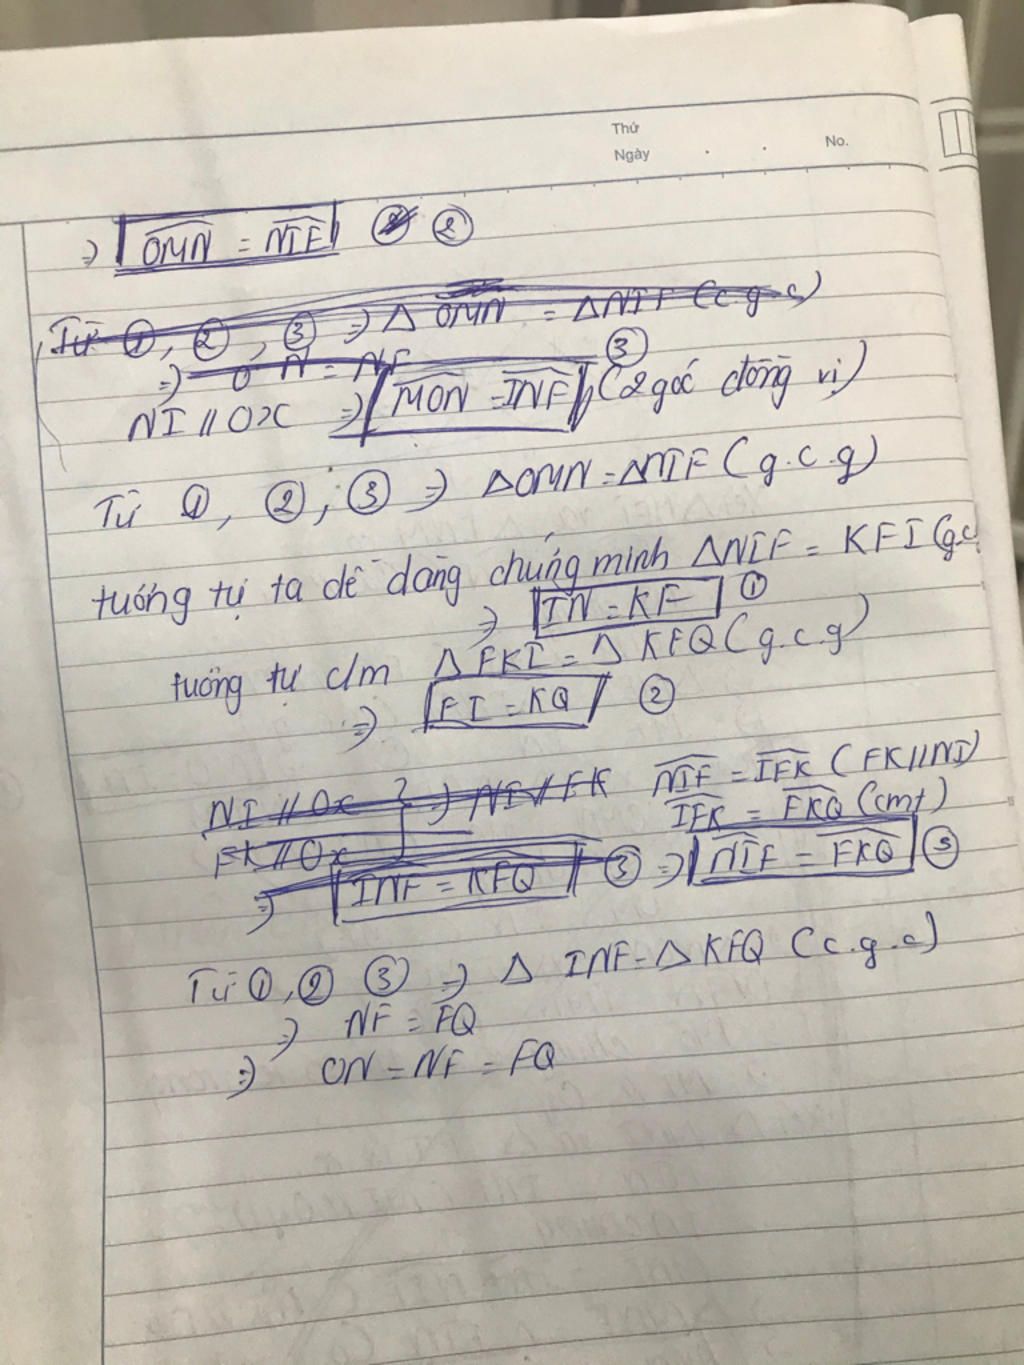 Thứ
Ngày . . No.
=> OMN = NIF ②
Từ ①, ②, ③ => Δ OMN = ΔNIF (c.g.c)
=> ON = NF
NI // Ox => MON = INF (2 góc đồng vị) ③
Từ ①, ②, ③ => ΔOMN = ΔNIF (g.c.g)
tương tự ta dễ dàng chứng minh ΔNIF = KFI (g.c
=> IN = KF ①
tương tự c/m Δ FKI = Δ KFQ (g.c.g)
=> FI = KQ ②
NI // Ox } => NI // FK NIF = IFK (FK // NI)
FK // Ox IFK = FKQ (cmt)
=> INF = KFQ ③ => NIF = FKQ ③
Từ ①, ② ③ => Δ INF = Δ KFQ (c.g.c)
=> NF = FQ
=> ON = NF = FQ